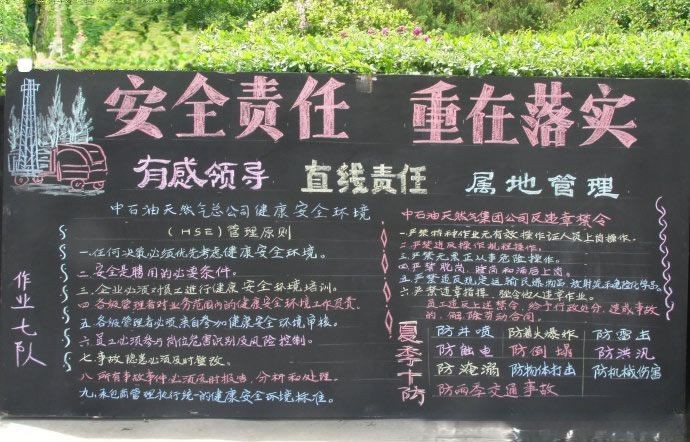 安全责任 重在落实
有感领导 直线责任 属地管理
中石油天然气总公司健康安全环境
(HSE)管理原则
一.任何决策必须优先考虑健康安全环境。
二.安全是聘用的必要条件。
三.企业必须对员工进行健康安全环境培训。
四.各级管理者对业务范围内的健康安全环境工作负责。
五.各级管理者必须亲自参加健康安全环境审核。
六.员工必须参与岗位危害识别及风险控制。
七.事故隐患必须及时整改。
八.所有事故事件必须及时报告、分析和处理。
九.承包商管理执行统一的健康安全环境标准。
作业七队
中石油天然气集团公司反违章禁令
一.严禁特种作业无有效操作证人员上岗操作。
二.严禁违反操作规程操作。
三.严禁无票证从事危险操作。
四.严禁脱岗、睡岗和酒后上岗。
五.严禁违反规定运输民爆物品、放射源和危险化学品。
六.严禁违章指挥、强令他人违章作业。
员工违反上述禁令,给予行政处分;造成事故
的,解除劳动合同。
夏季十防
防井喷 防着火爆炸 防雷击
防触电 防倒塌 防洪汛
防淹溺 防物体打击 防机械伤害
防雨季交通事故